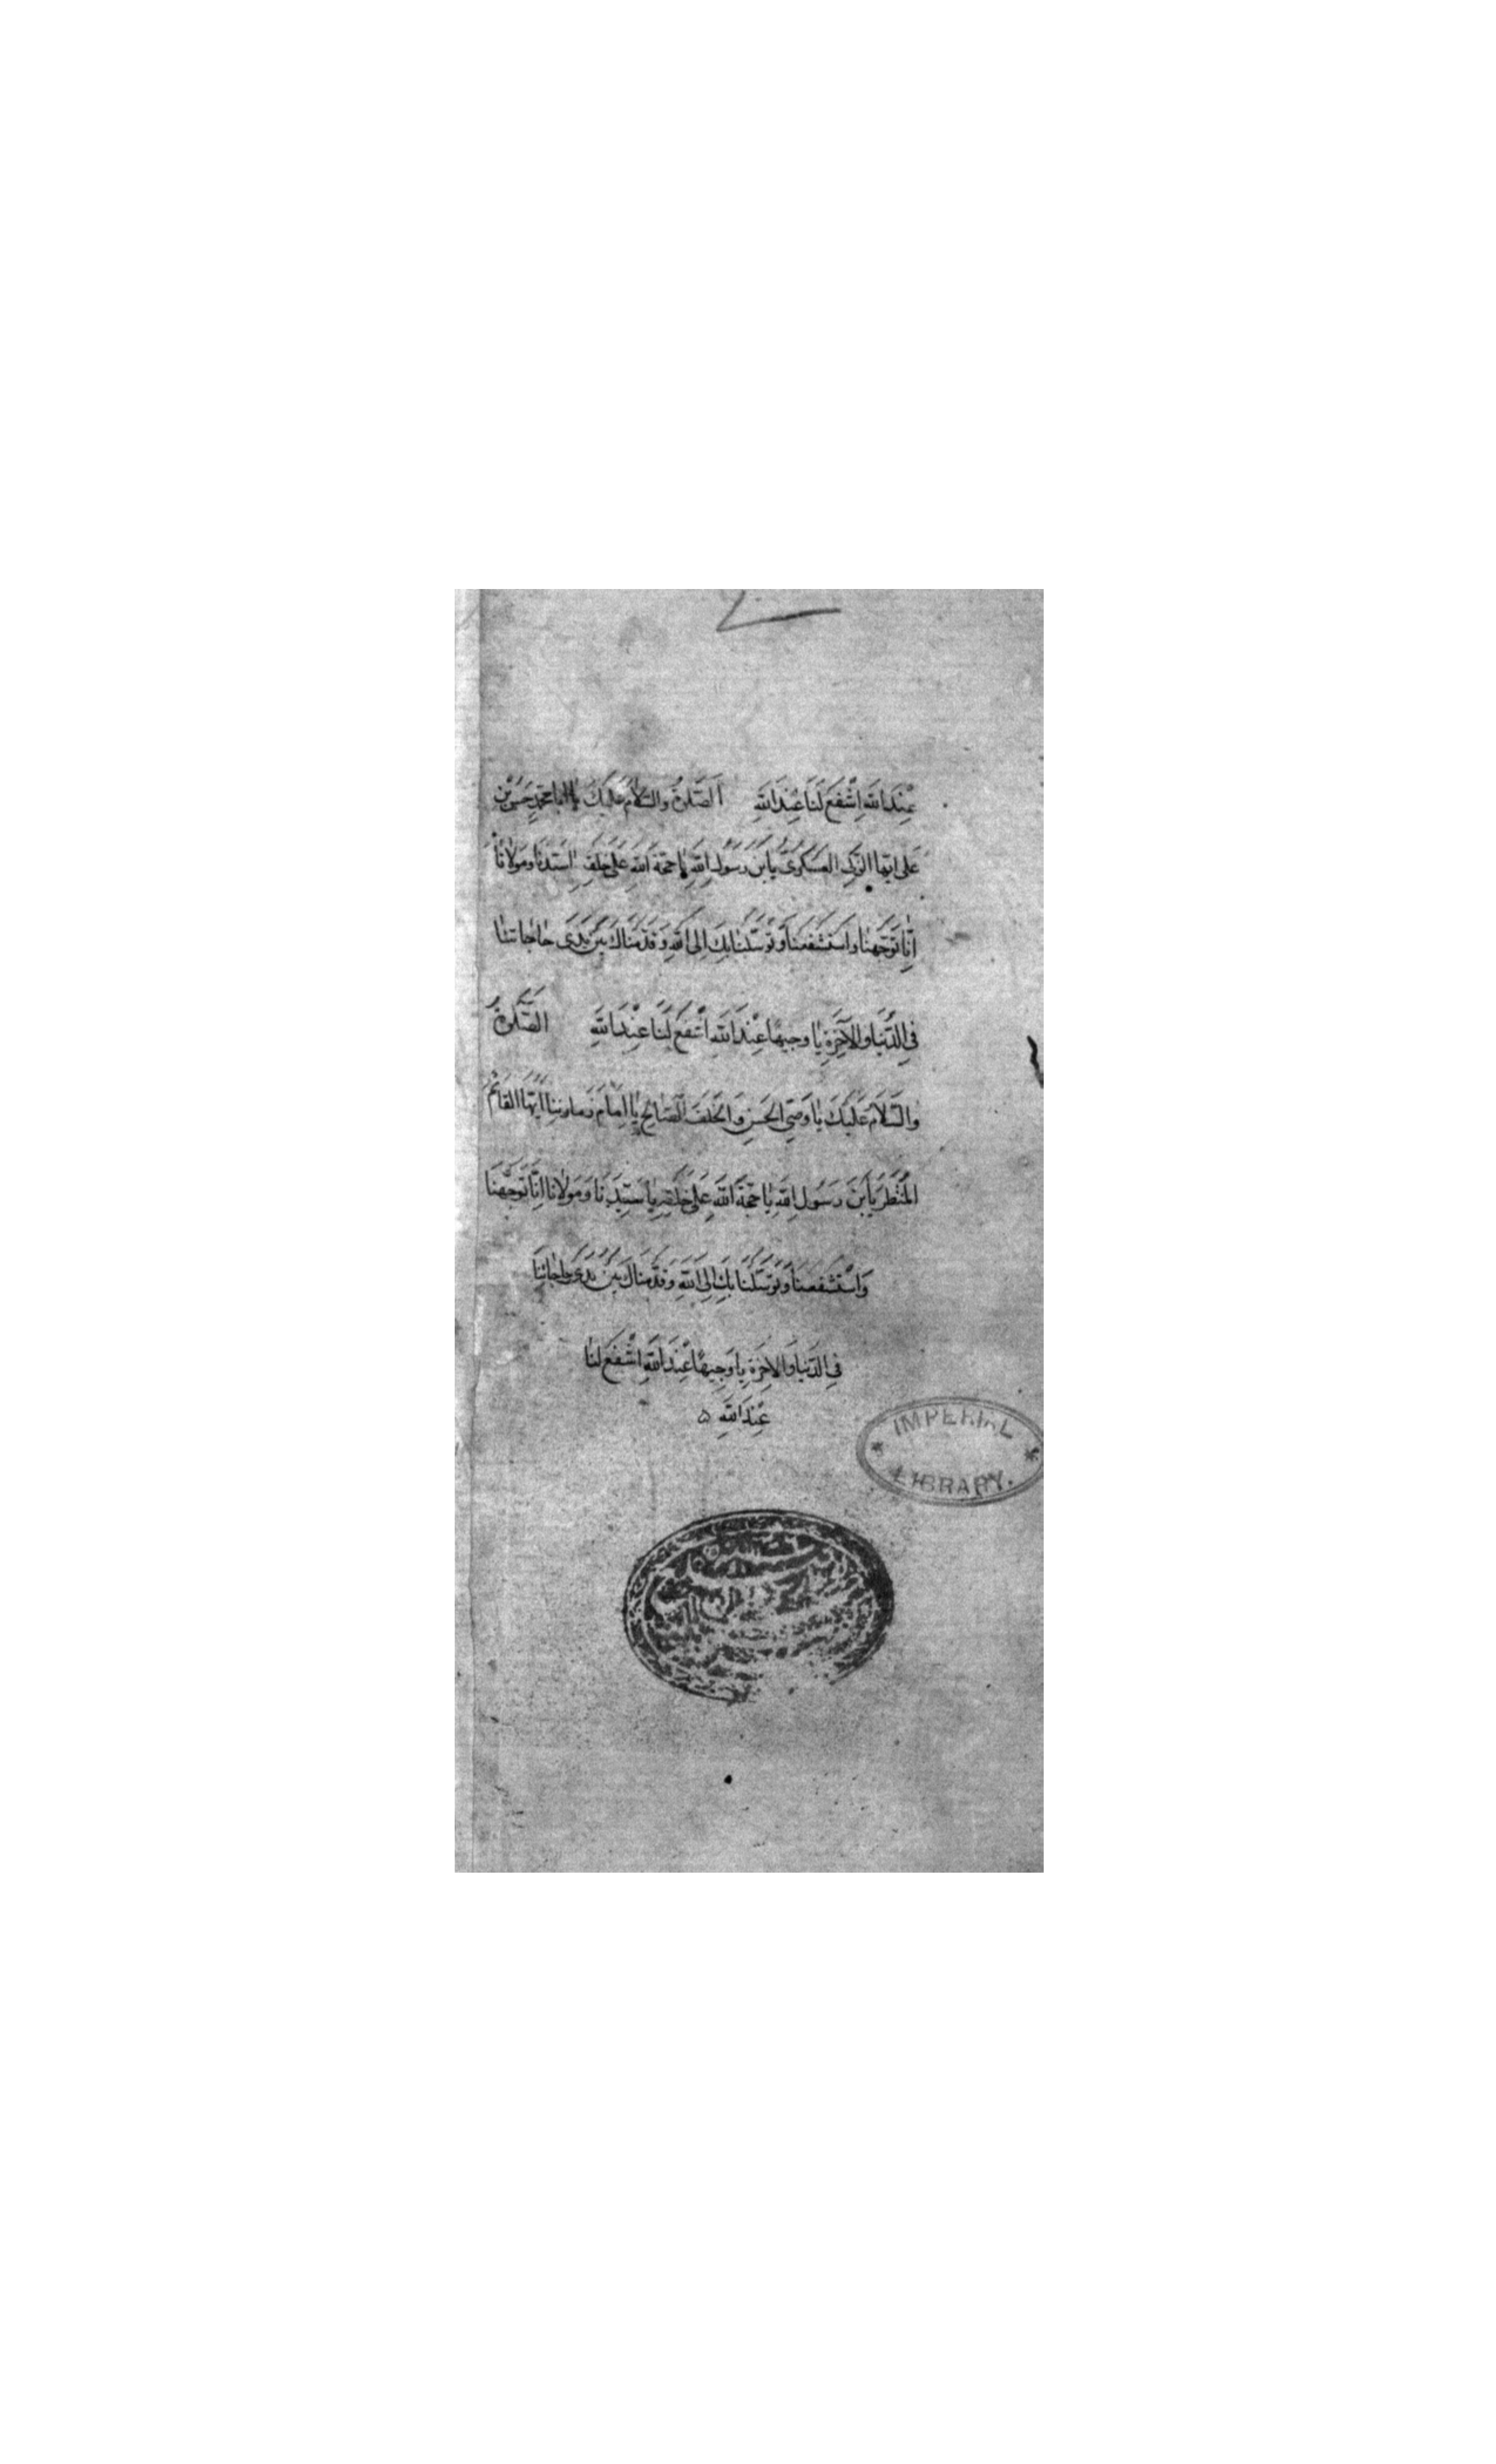 عِنْدَ اللهِ اِشْفَعْ لَنَا عِنْدَ اللهِ اَلصَّلٰوةُ وَالسَّلَامُ عَلَيْكَ يَا اَبَا مُحَمَّدٍ حَسَنَ بْنَ
عَلِی اَيُّهَا الزَّكِی العَسْكَرِیُّ يَابْنَ رَسُولِ اللهِ يَا حُجَّةَ اللهِ عَلٰی خَلْقِهِ يَا سَيِّدَنَا وَمَوْلَانَا
اِنَّا تَوَجَّهْنَا وَاسْتَشْفَعْنَا وَتَوَسَّلْنَا بِكَ اِلَی اللهِ وَقَدَّمْنَاكَ بَيْنَ يَدَیْ حَاجَاتِنَا
فِی الدُّنْيَا وَالْآخِرَةِ يَا وَجِيهًا عِنْدَ اللهِ اشْفَعْ لَنَا عِنْدَ اللهِ اَلصَّلٰوةُ
وَالسَّلَامُ عَلَيْكَ يَا وَصِیَّ الْحَسَنِ وَالْخَلَفَ الصَّالِحَ يَا اِمَامَ زَمَانِنَا اَيُّهَا الْقَائِمُ
الْمُنْتَظَرُ يَابْنَ رَسُولِ اللهِ يَا حُجَّةَ اللهِ عَلٰی خَلْقِهِ يَا سَيِّدَنَا وَمَوْلَانَا اِنَّا تَوَجَّهْنَا
وَاسْتَشْفَعْنَا وَتَوَسَّلْنَا بِكَ اِلَی اللهِ وَقَدَّمْنَاكَ بَيْنَ يَدَیْ حَاجَاتِنَا
فِی الدُّنْيَا وَالْاٰخِرَةِ يَا وَجِيهًا عِنْدَ اللهِ اشْفَعْ لَنَا
عِنْدَ اللهِ ۵
IMPERIAL
LIBRARY.